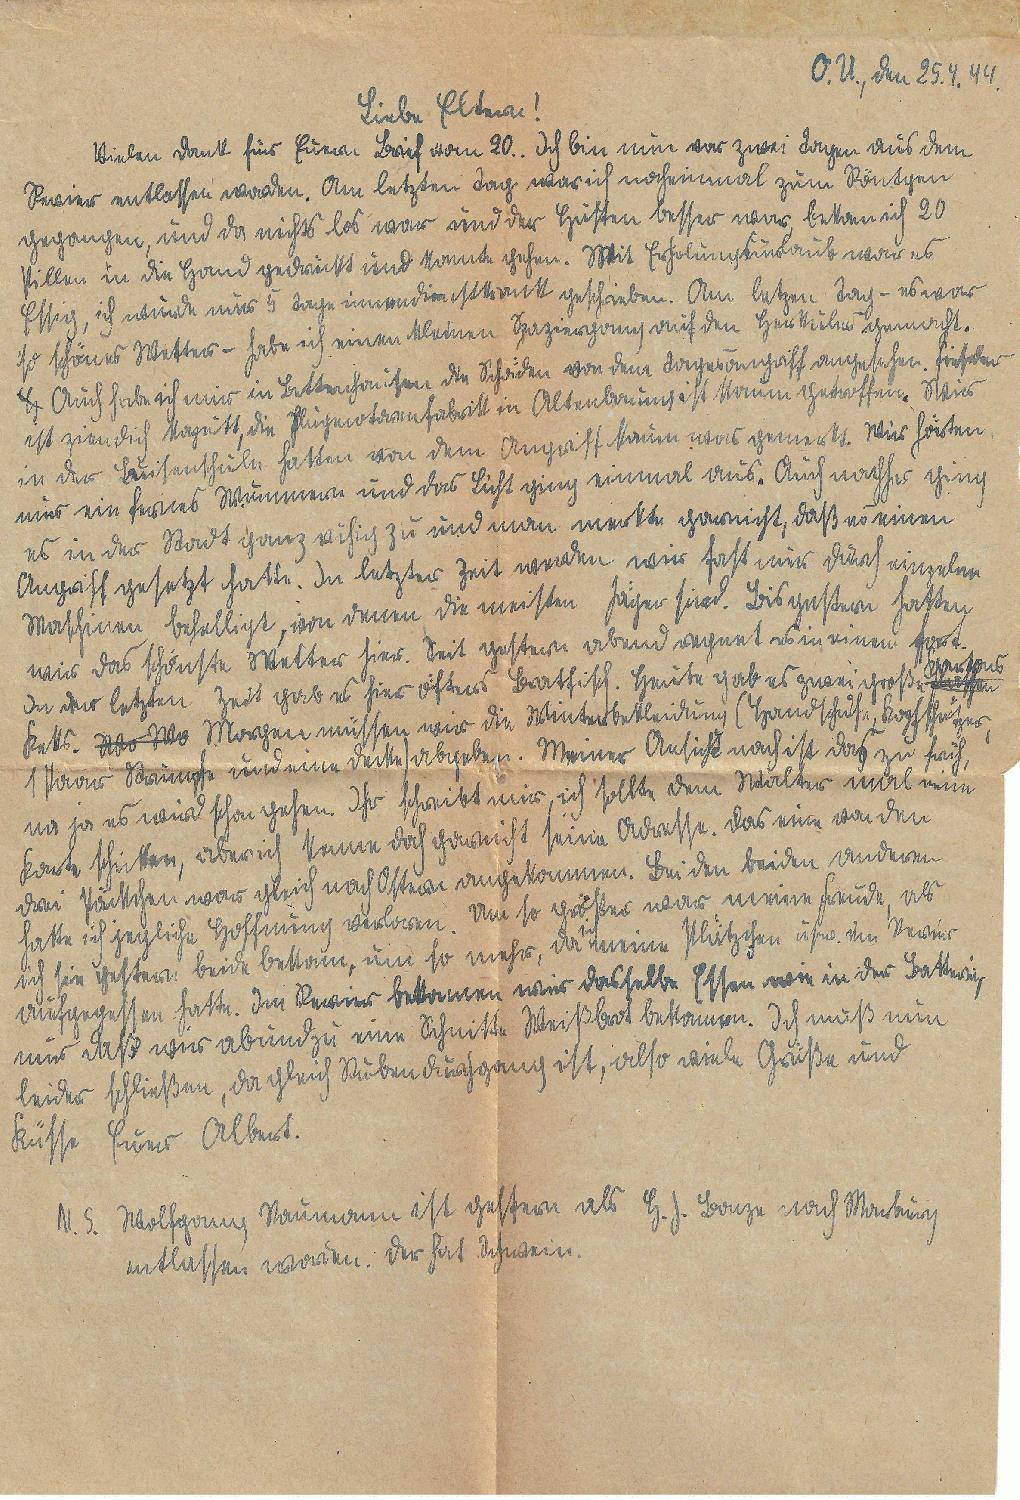 O.U., den 25.4.44.
Liebe Eltern!
Vielen Dank für Euern Brief vom 20.. Ich bin nun vor zwei Tagen aus dem
Revier entlassen worden. Am letzten Tag war ich nocheinmal zum Röntgen
gegangen, und da nichts los war und der Husten besser war, bekam ich 20
Pillen in die Hand gedrückt und konnte gehen. Mit Erholungsurlaub war es
Essig, ich wurde nur 5 Tage innendienstkrank geschrieben. Am letzen Tag – es war
so schönes Wetter – habe ich einen kleinen Spaziergang auf den Herkules gemacht.
Auch habe ich mir in Bettenhausen die Schäden von dem Tagesangriff angesehen.
ist ziemlich kaputt, die Flugmotorenfabrik in Altenbauna ist kaum getroffen. Wir
in der Luisenschule hatten von dem Angriff kaum was gemerkt. Wir hörten
nur ein fernes Wummern und das Licht ging einmal aus. Auch nachher ging
es in der Stadt ganz ruhig zu und man merkte garnicht, daß es einen
Angriff gesetzt hatte. In letzter Zeit werden wir fast nur durch einzelne
Maschinen behelligt, von denen die meisten Jäger sind. Bis gestern hatten
wir das schönste Wetter hier. Seit gestern abend regnet es in einem fort.
In der letzten Zeit gab es hier öfters Bratfisch. Heute gab es zwei große
Keks. Morgen müssen wir die Winterbekleidung (Handschuh, Kopfschützer,
1 Paar Strümpfe und eine Decke) abgeben. Meiner Ansicht nach ist das zu früh,
na ja es wird schon gehen. Ihr schreibt mir, ich sollte dem Walter mal eine
Karte schicken, aber ich kenne doch garnicht seine Adresse. Das eine von den
drei Päckchen war gleich nach Ostern angekommen. Bei den beiden anderen
hatte ich jegliche Hoffnung verloren. Um so größer war meine Freude, als
ich sie gestern beide bekam, um so mehr, da ich meine Plätzchen usw. im Revier
aufgegessen hatte. Im Revier bekamen wir dasselbe Essen wie in der Batterie,
nur daß wir abundzu eine Schnitte Weißbrot bekamen. Ich muß nun
leider schließen, da gleich Stubendurchgang ist, also viele Grüße und
Küsse Euer Albert.
N.S. Wolfgang Naumann ist gestern als H.J. Bonze nach Marburg
entlassen worden. Der hat Schwein.